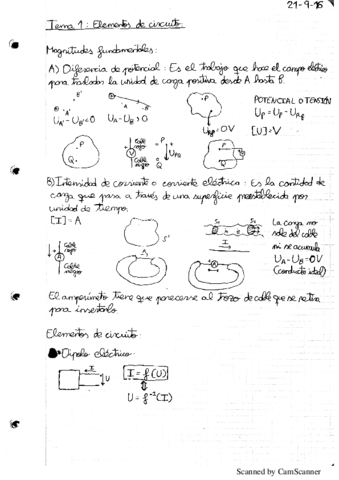 21-9-16
Tema 1: Elementos de circuito
Magnitudes fundamentales:
A) Diferencia de potencial: Es el trabajo que hace el campo eléctrico
para trasladar la unidad de carga positiva desde A hasta B.
POTENCIAL O TENSIÓN
[U]=V
B) Intensidad de corriente o corriente eléctrica: Es la cantidad de
carga que pasa a través de una superficie preestablecida por
unidad de tiempo.
[I]=A
La carga no
sale del cable
ni se acumula
U_A - U_B = 0V
(conductor ideal)
El amperímetro tiene que parecerse al trozo de cable que se retira
para insertarlo.
Elementos de circuito:
Dipolo eléctrico:
I = f(U)
U = f⁻¹(I)
Scanned by CamScanner